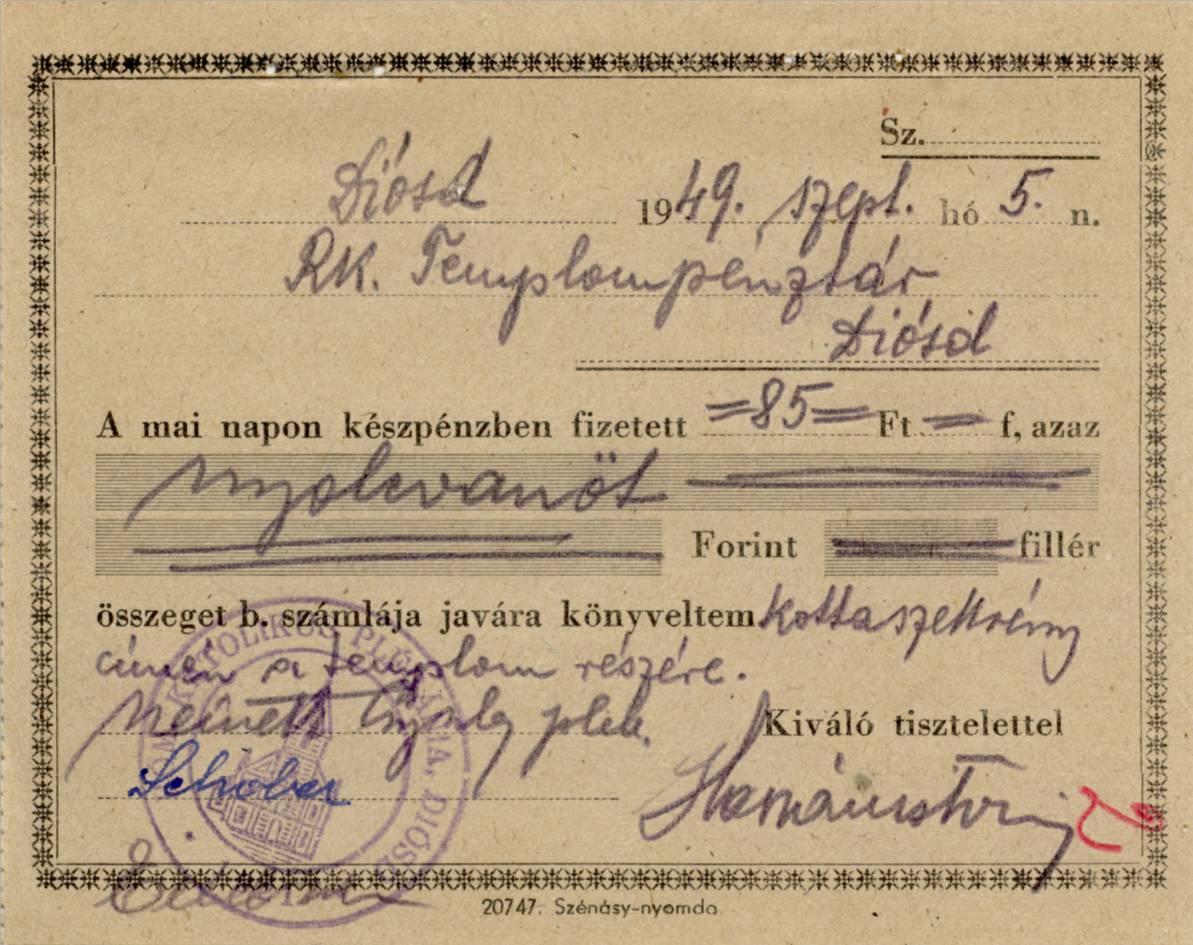 Sz.
Diósd 1949. szept. hó 5. n.
RK. Templompénztár
Diósd
A mai napon készpénzben fizetett =85= Ft = f, azaz
nyolcvanöt
Forint fillér
összeget b. számlája javára könyveltem kottaszekrény
címén a templom részére.
Németh pleb. Kiváló tisztelettel
Schober
KATOLIKUS PLÉBÁNIA, DIÓSD
20747. Szénásy-nyomda